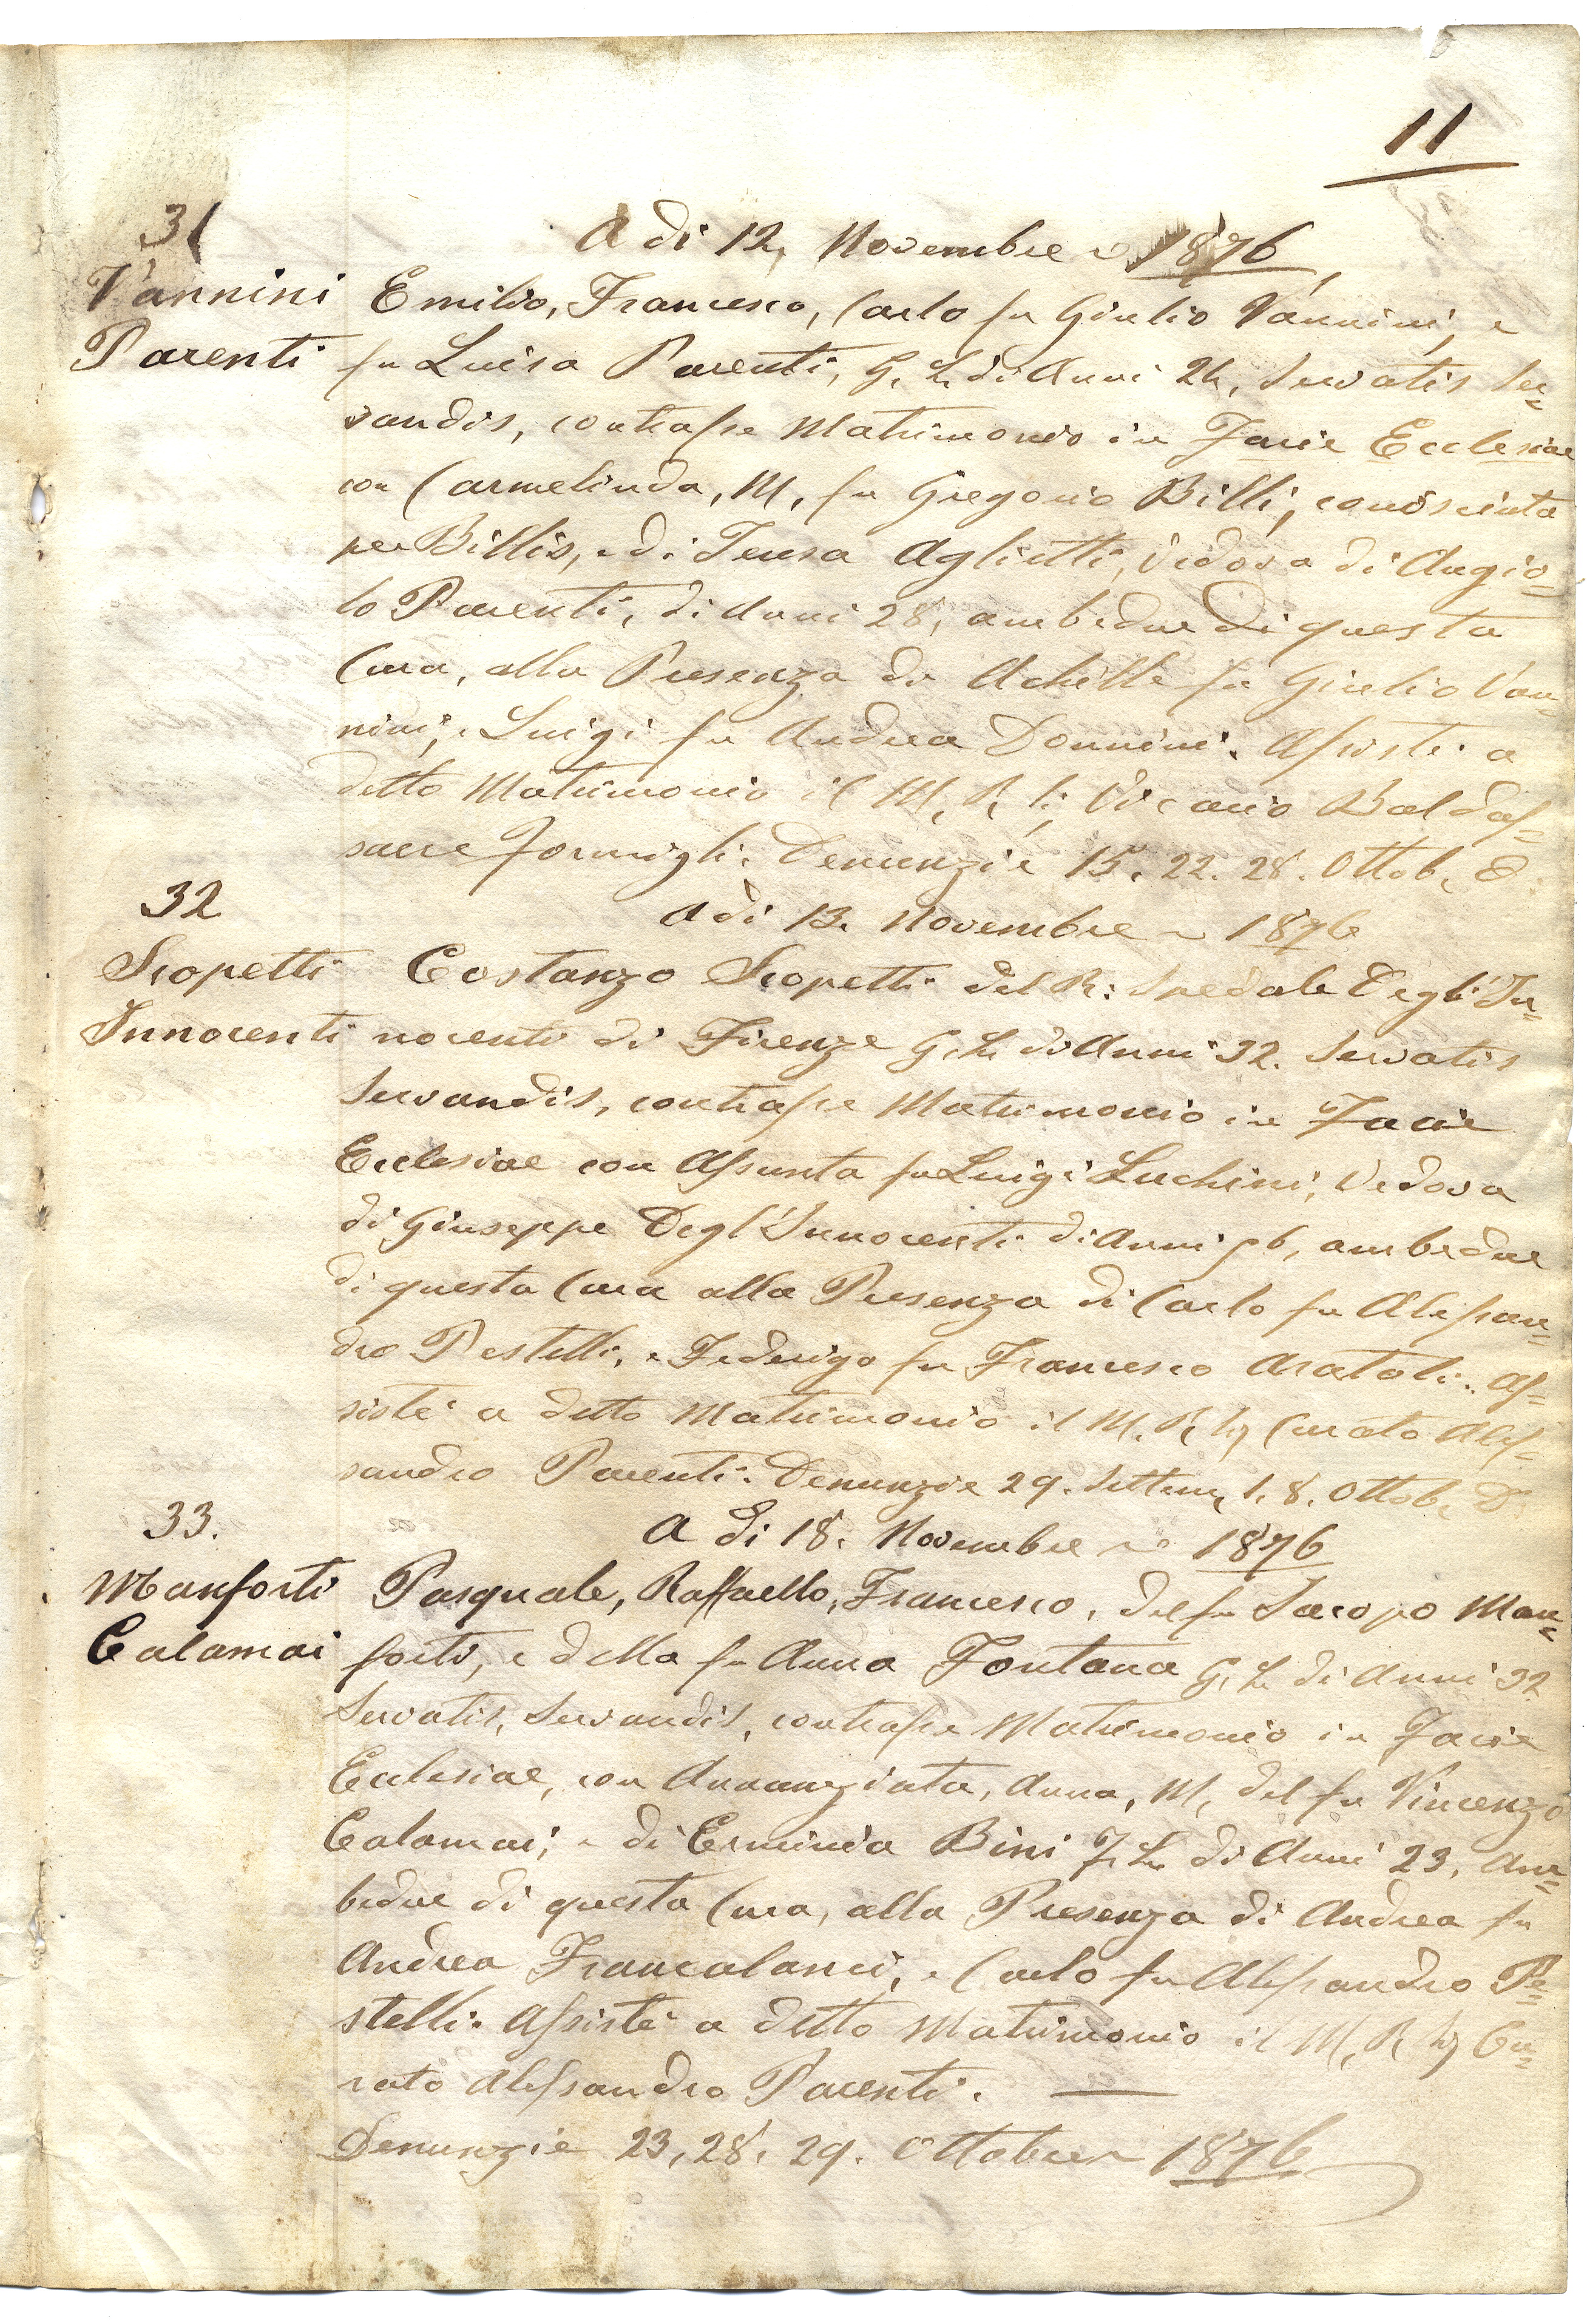 11
31
A di 12, Novembre 1876,
Vannini Emilio, Francesco, Carlo fu Giulio Vannini, e
Parenti fu Luisa Parenti, G. L. di Anni 24, Servatis Ser=
vandis, contrasse Matrimonio in Facie Ecclesiae
con Carmelinda, M, fu Gregorio Billi, conosciuta
per Billis, e di Teresa Aglietti, Vedova di Angio=
lo Parenti, di Anni 28, ambedue di questa
Cura, alla Presenza di Achille fu Giulio Van=
nini, e Luigi fu Andrea Donnini. Assistè a
detto Matrimonio il M, R, Vicario Baldas=
sarre Formigli. Denunzie 15. 22. 28. Ottob,
32
A di 13. Novembre 1876
Scopetti Costanzo Scopetti del R: Spedale Degli In=
Innocenti nocenti di Firenze G. L. di Anni 32. Servatis
Servandis, contrasse Matrimonio in Facie
Ecclesiae con Assunta fu Luigi Luchini, Vedova
di Giuseppe Degl'Innocenti di Anni 56, ambedue
di questa Cura alla Presenza di Carlo fu Alessan=
dro Pestelli, e Federigo fu Francesco Aratoli. As=
sistè a detto Matrimonio il M. R, Curato Ales=
sandro Parenti. Denunzie 29. Settem, 1. 8. Ottob,
33.
A di 18. Novembre 1876
Manforti Pasquale, Raffaello, Francesco, del fu Iacopo Man=
Calamai forti, e della fu Anna Fontana G. L. di Anni 32
Servatis, Servandis, contrasse Matrimonio in Facie
Ecclesiae, con Annunziata, Anna, M, del fu Vincenzo
Calamai; e di Erminia Bini F. L. di Anni 23, Am=
bedue di questa Cura, alla Presenza di Andrea fu
Andrea Francalanci, e Carlo fu Alessandro Pe=
stelli. Assistè a detto Matrimonio il M, R, Cu=
rato Alessandro Parenti.
Denunzie 23, 28, 29. Ottobre 1876